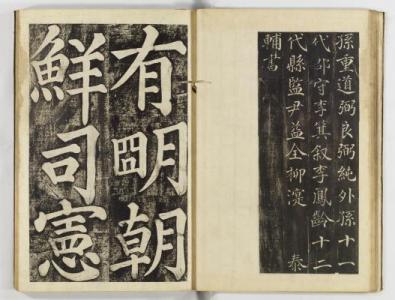 孫重道弼良弼純外孫十一
代郡守李箕叙李鳳齡十二
代縣監尹益全柳 泰
輔書
有明朝
鮮司憲